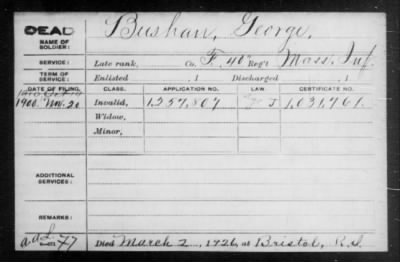 DEAD
NAME OF SOLDIER: Bushan, George.
SERVICE: Late rank, Co. F, 40" Reg't Mass. Inf.
TERM OF SERVICE: Enlisted , 1 Discharged , 1
DATE OF FILING. CLASS. APPLICATION NO. LAW. CERTIFICATE NO.
1900. Nov. 20 Invalid, 1,257,807 J 1,031,761.
Widow,
Minor,
ADDITIONAL SERVICES:
REMARKS:
Died March 2, 1926, at Bristol, R.I.